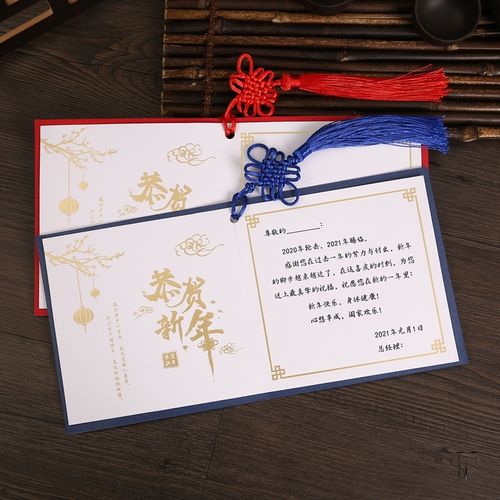 恭贺
恭贺
新年
尊敬的________:
2020年轮去,2021年踏临。
感谢您在过去一年的努力与付出,新年
的脚步越来越近了,在这喜庆的时刻,为您
送上最真挚的祝福,祝愿您在新的一年里:
新年快乐,身体健康!
心想事成,阖家欢乐!
2021年元月1日
总经理: